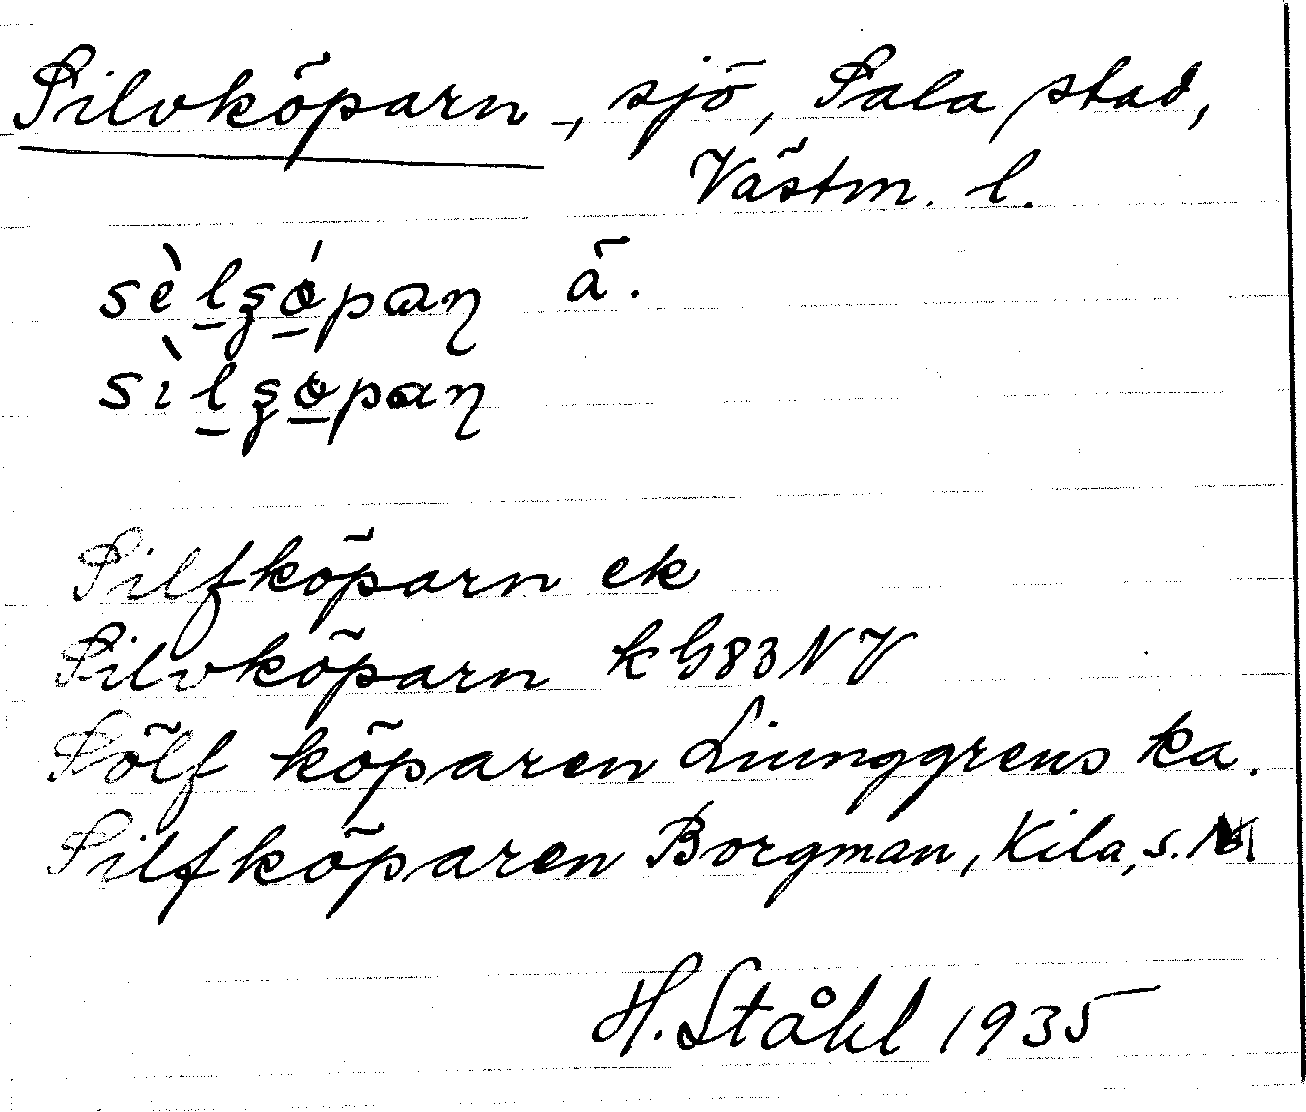 Silvköparn, sjö, Sala stad,
Västm. l.
sèlʂópaɳ ä.
sìlʂöpaɳ
Silfköparn ek
Silvköparn k G83NV
Sölf köparen Liunggrens ka.
Silfköparen Borgman, Kila, s.
H. Ståhl 1935